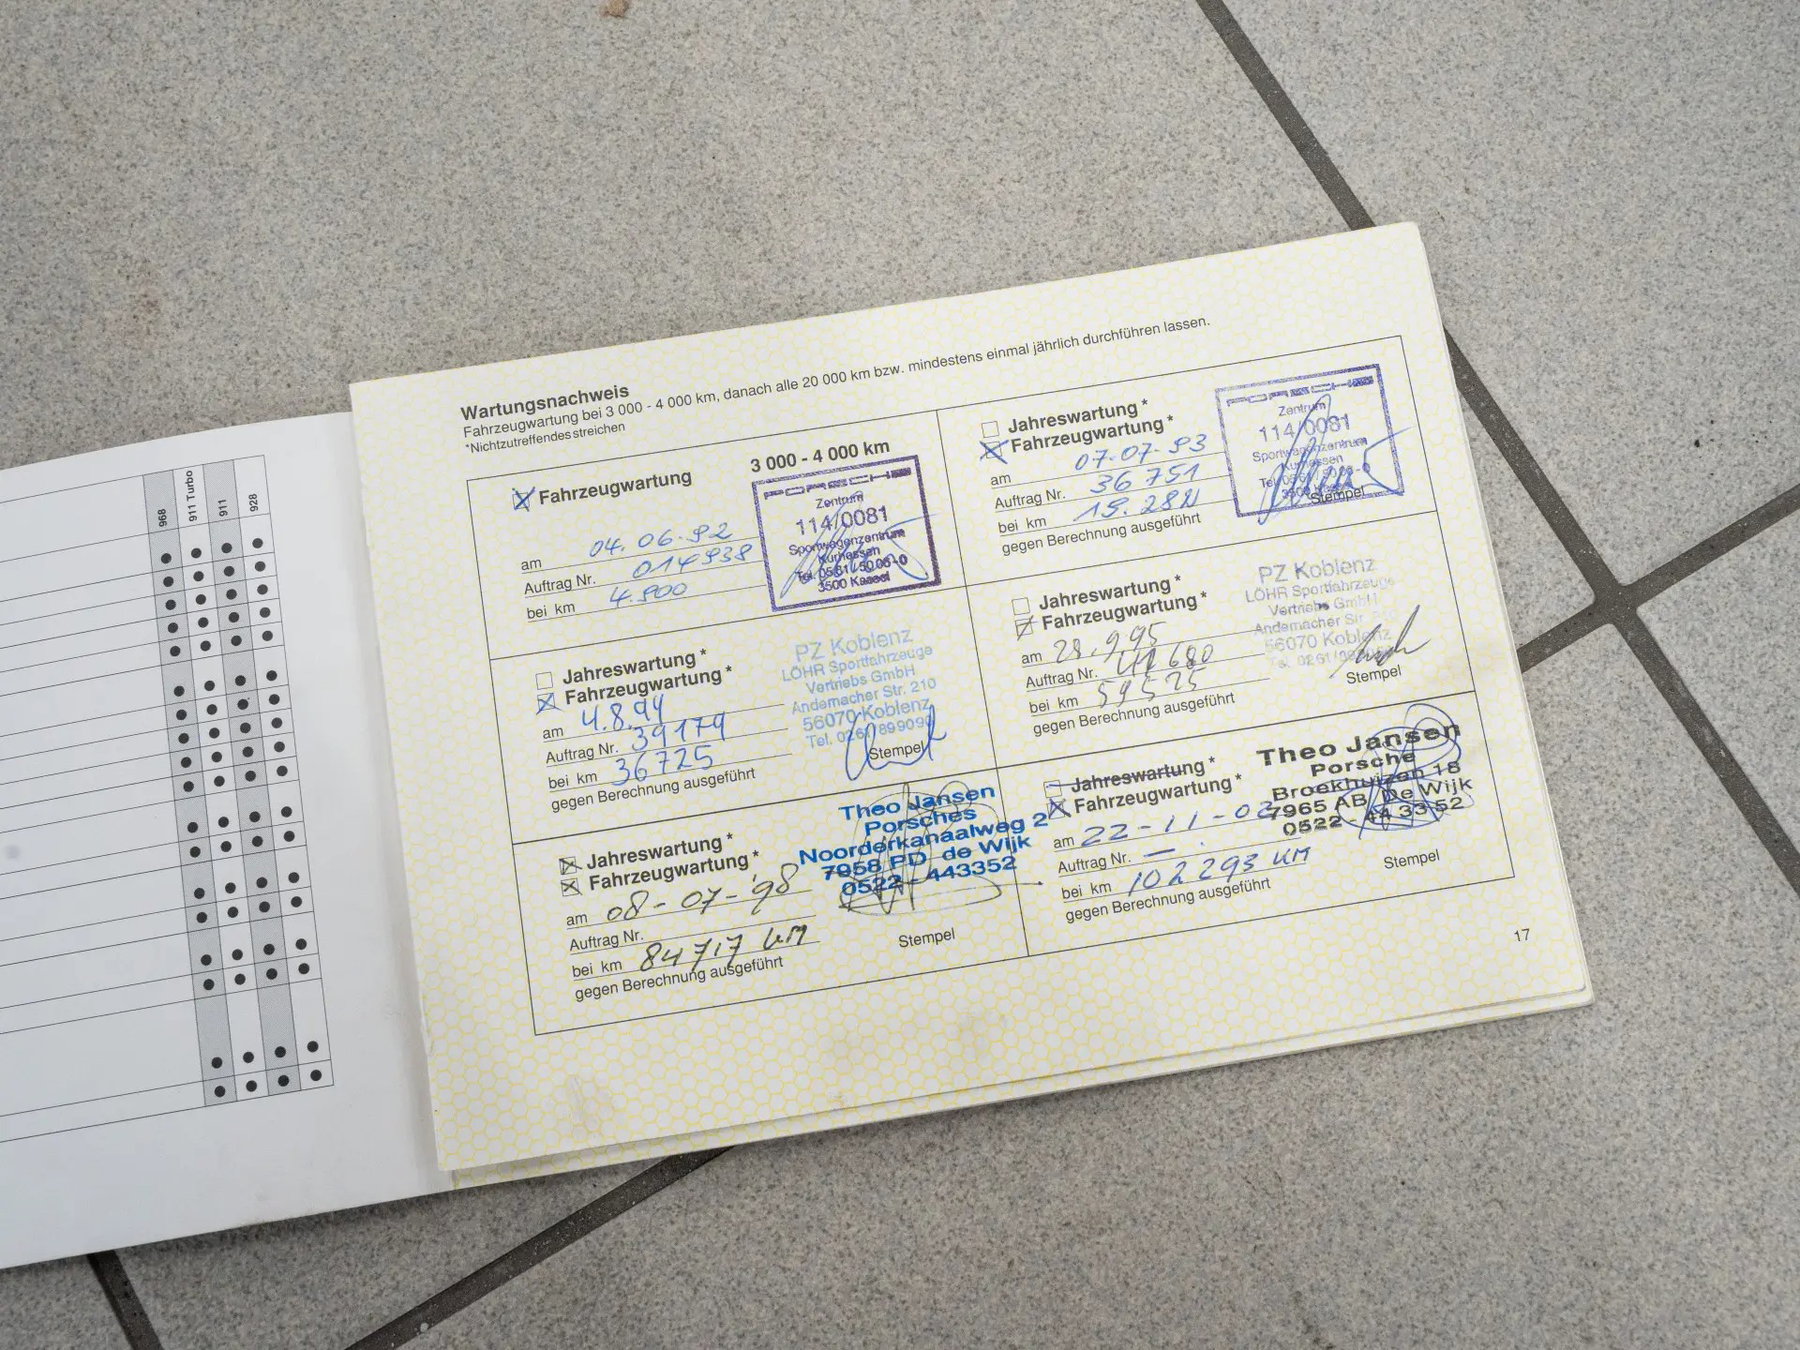 968
911 Turbo
911
928
Wartungsnachweis
Fahrzeugwartung bei 3 000 - 4 000 km, danach alle 20 000 km bzw. mindestens einmal jährlich durchführen lassen.
*Nichtzutreffendes streichen
Fahrzeugwartung
3 000 - 4 000 km
am 04.06.92
Auftrag Nr. 014938
bei km 4.900
PORSCHE
Zentrum
114/0081
Sportwagenzentrum
Kurhessen
Tel. 0561/5006-0
3500 Kassel
Jahreswartung *
Fahrzeugwartung *
am 07.07.93
Auftrag Nr. 36 751
bei km 19.28
gegen Berechnung ausgeführt
PORSCHE
Zentrum
114/0081
Sportwagenzentrum
Kurhessen
Stempel
Jahreswartung *
Fahrzeugwartung *
am 4.8.94
Auftrag Nr. 39179
bei km 36725
gegen Berechnung ausgeführt
PZ Koblenz
LÖHR Sportfahrzeuge
Vertriebs GmbH
Andernacher Str. 210
56070 Koblenz
Tel. 0261/899090
Stempel
Jahreswartung *
Fahrzeugwartung *
am 28.9.95
Auftrag Nr. 680
bei km 59525
gegen Berechnung ausgeführt
PZ Koblenz
LÖHR Sportfahrzeuge
Vertriebs GmbH
Andernacher Str
56070 Koblenz
Stempel
Jahreswartung *
Fahrzeugwartung *
am 08-07-'98
Auftrag Nr.
bei km 84717 KM
gegen Berechnung ausgeführt
Theo Jansen
Porsches
Noorderkanaalweg 2
7958 PD de Wijk
0522 - 443352
Stempel
Jahreswartung *
Fahrzeugwartung *
am 22-11-02
Auftrag Nr. —
bei km 102293 KM
gegen Berechnung ausgeführt
Theo Jansen
Porsche
Broekhuizen 18
7965 AB De Wijk
0522 - 44 33 52
Stempel
17